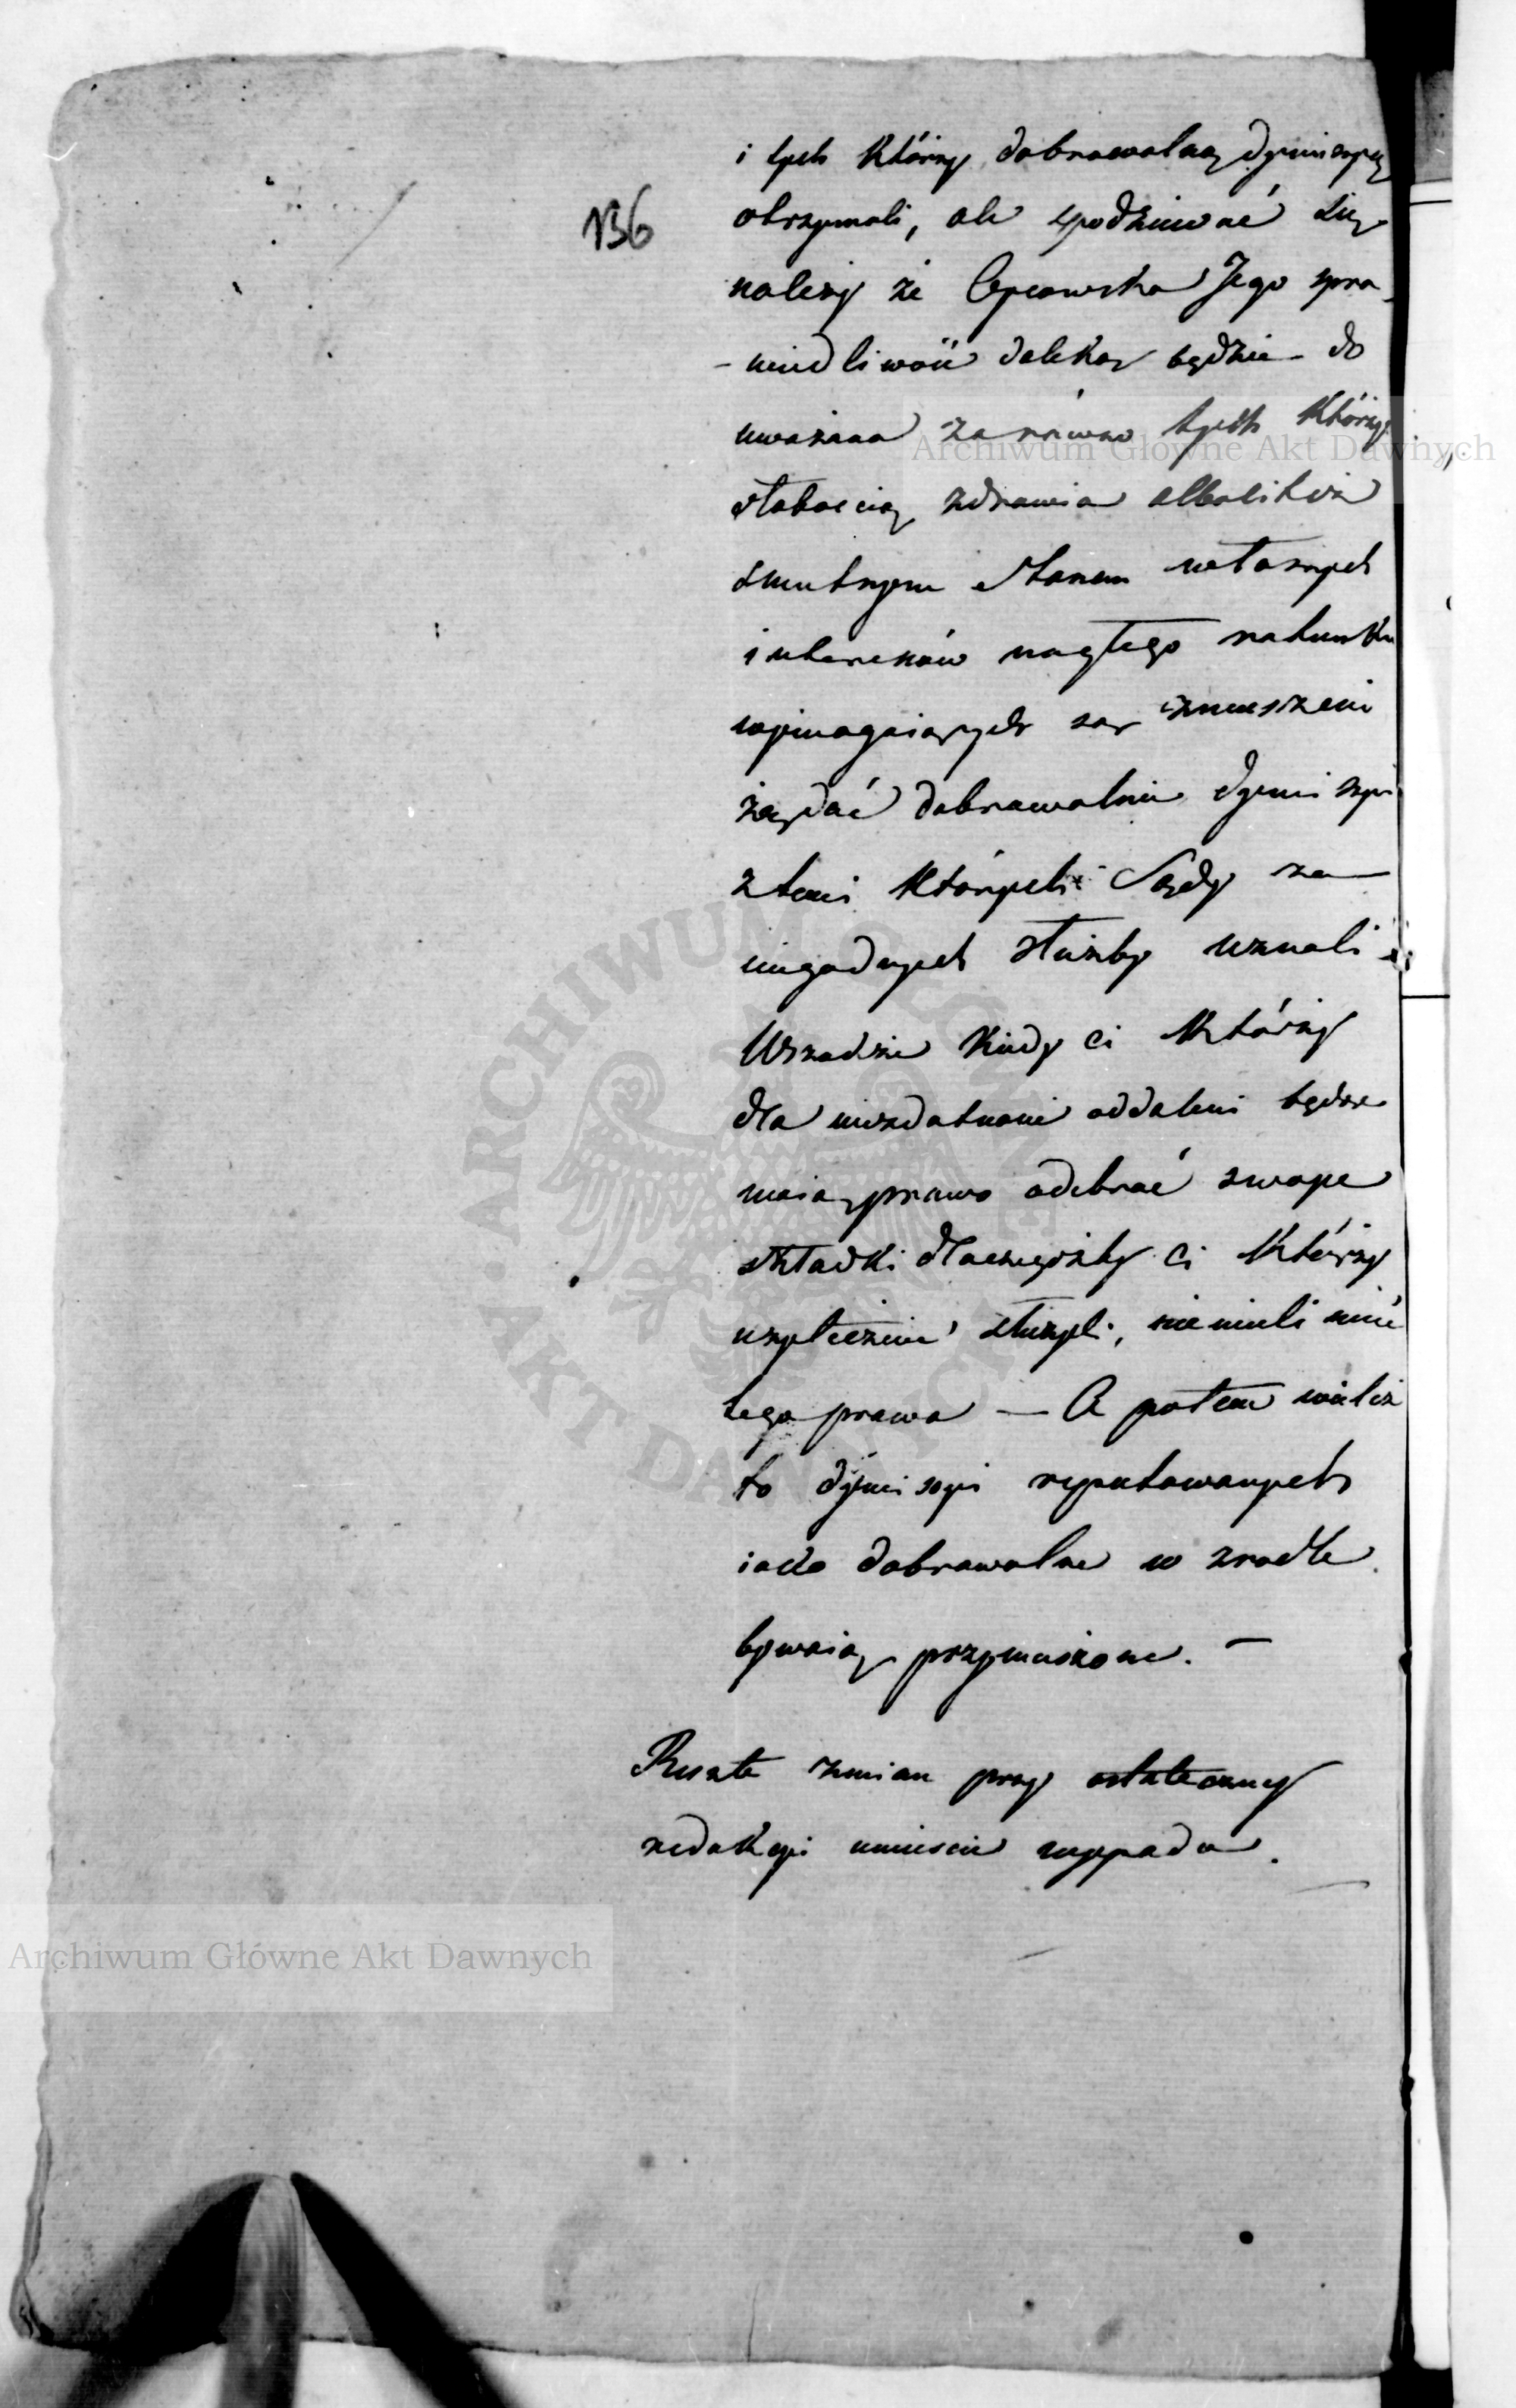 136
i tych którzy dobrowolną dymissyę
otrzymali, ale spodziewać się
należy że Oycowska Jego spra-
-wiedliwość daleką będzie do
uważana zarówno tych którzy
słabością zdrowia albolitéż
smutnym stanem własnych
interesów nagłego ratunku
wymagaiących są zmuszeni
żądać dobrowolnie dymissyi
z temi których Sądy za
niegodnych służby uznali
Wszadzie kiedy ci którzy
dla niezdatności oddaleni będą
maią prawo odebrać swoje
składki dlaczegożby ci którzy
użytecznie służyli, niemieli mieć
tego prawa — A potem wieleż
to dymissyi reputowanych
iako dobrowolne w zrodle
bywaią przymuszone. —
Resztę zmian przy ostateczney
redakcyi umiescić wypada.
Archiwum Główne Akt Dawnych
Archiwum Główne Akt Dawnych
ARCHIWUM GŁÓWNE AKT DAWNYCH